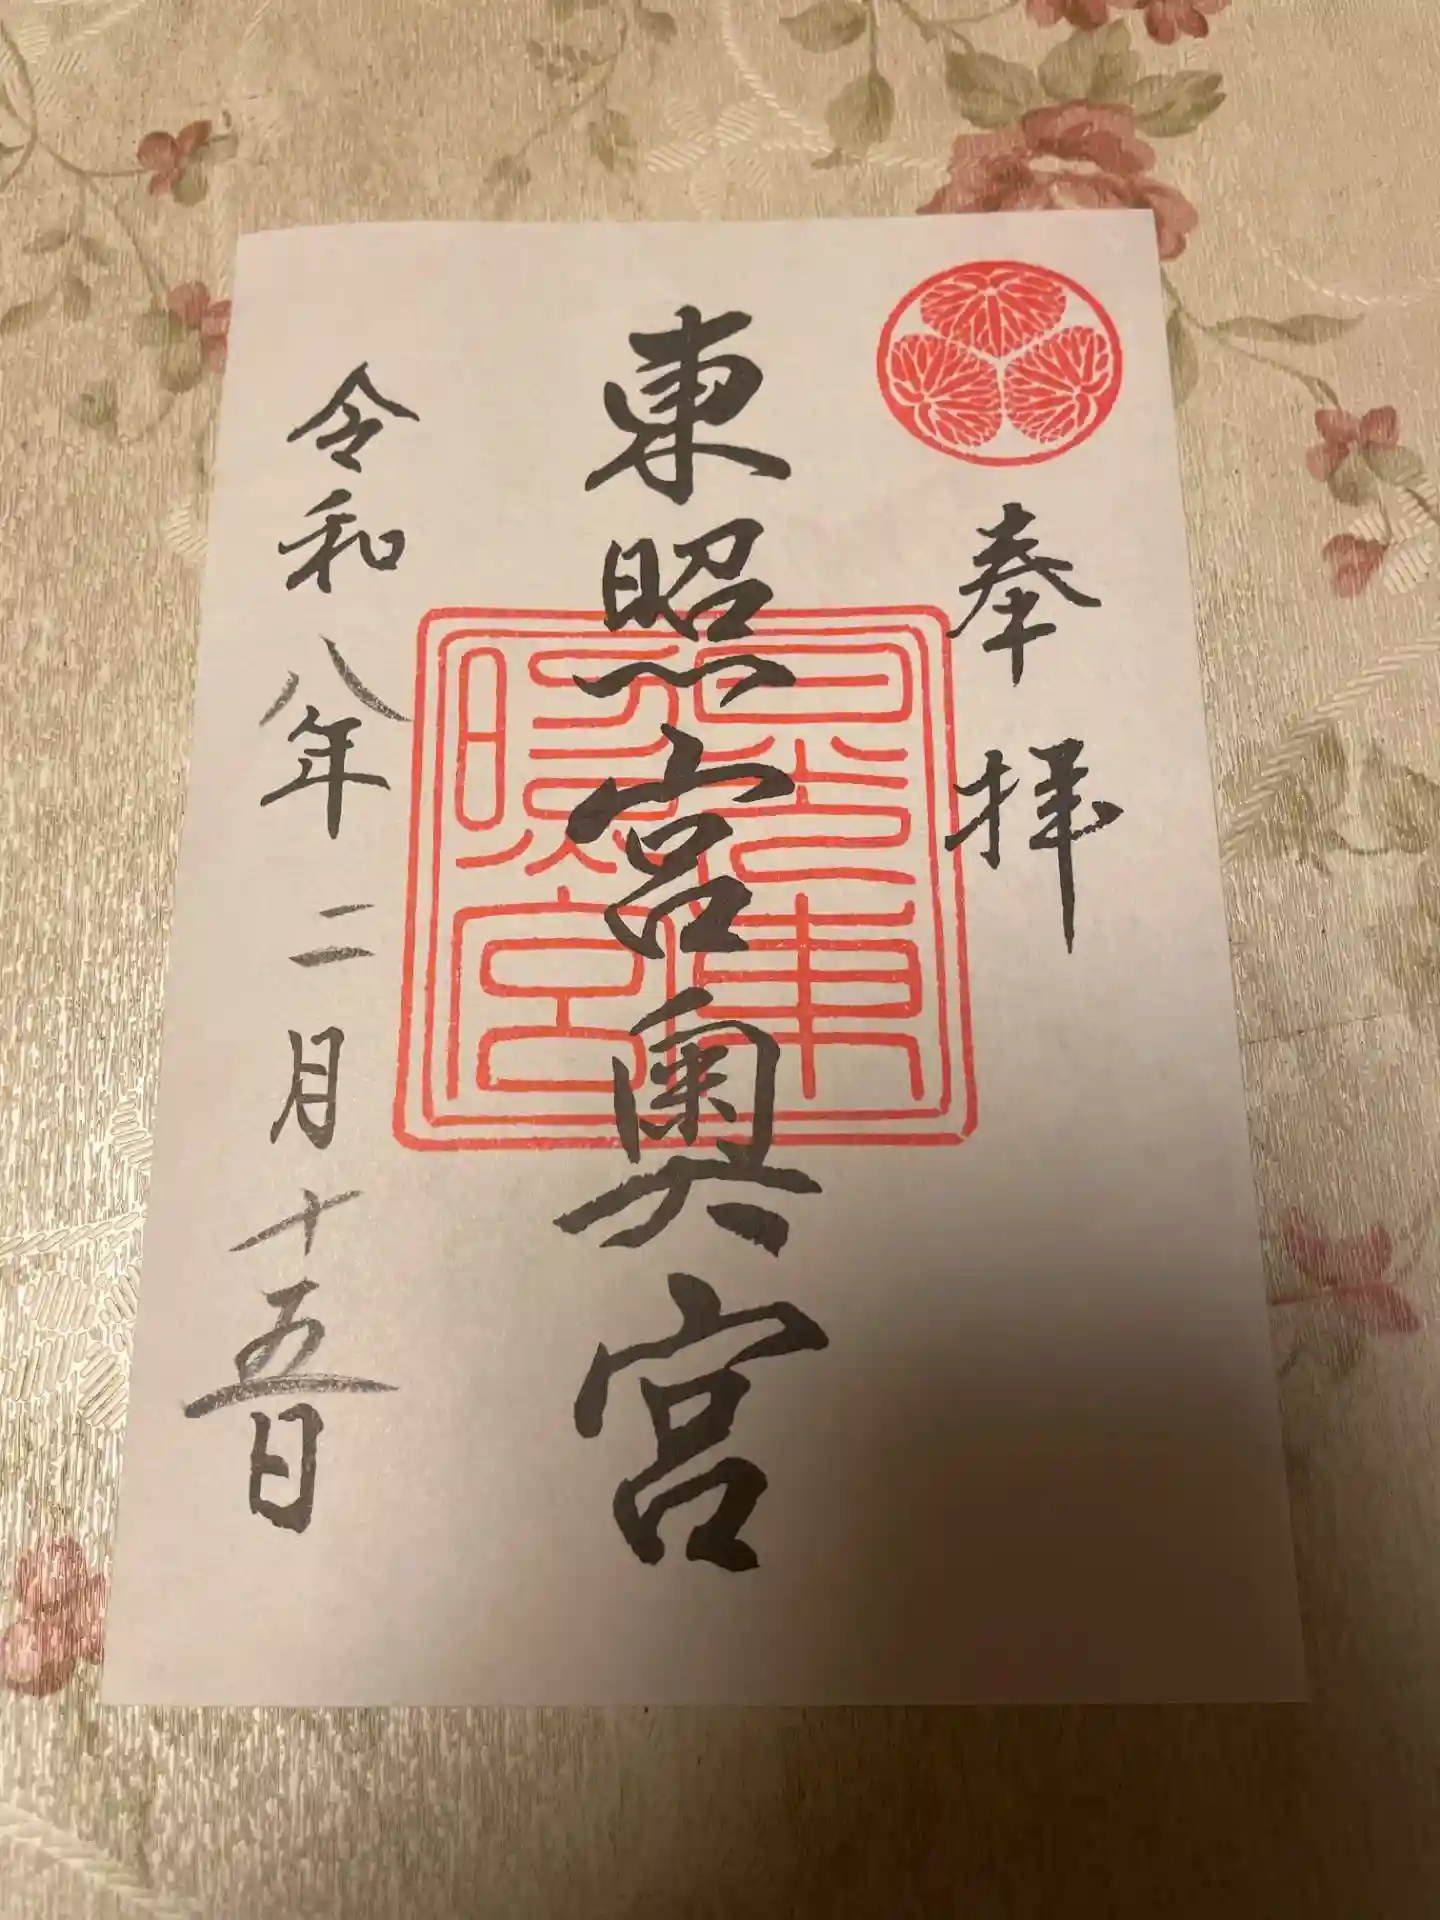 奉拝
東照宮奥宮
日光東照宮
令和八年二月十五日